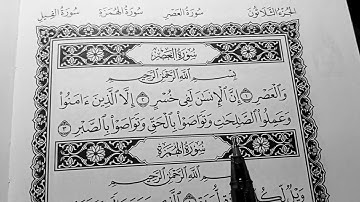 الجزء الثلاثون سورة العصر سورة الهمزة سورة الفيل
سورة العصر
بسم الله الرحمن الرحيم
وَالْعَصْرِ ١ إِنَّ الْإِنسَٰنَ لَفِى خُسْرٍ ٢ إِلَّا الَّذِينَ ءَامَنُوا
وَعَمِلُوا الصَّٰلِحَٰتِ وَتَوَاصَوْا بِالْحَقِّ وَتَوَاصَوْا بِالصَّبْرِ ٣
سورة الهمزة
بسم الله الرحمن الرحيم
وَيْلٌ لِّكُلِّ